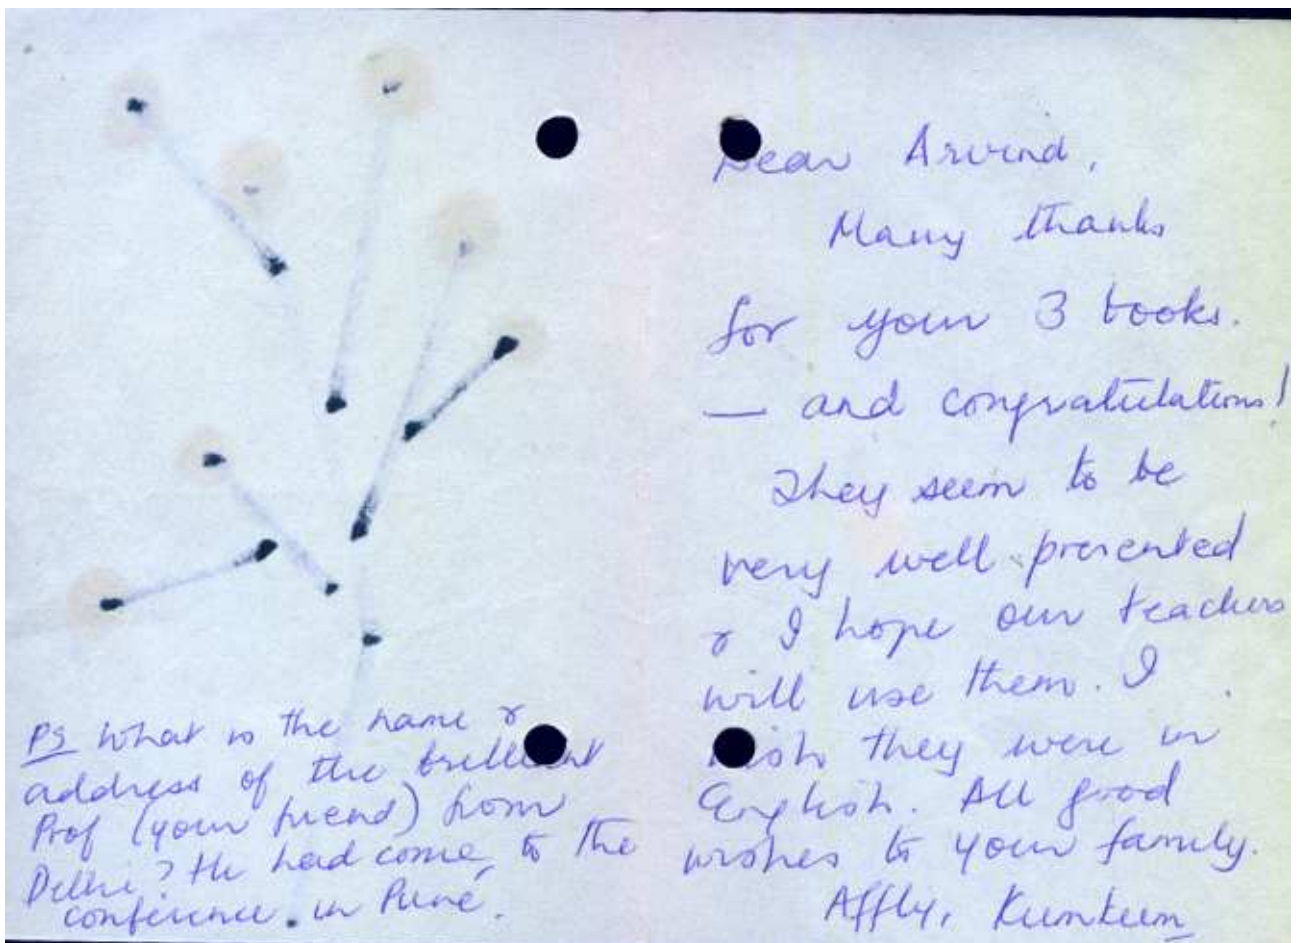 Dear Arvind,
Many thanks
for your 3 books.
— and congratulations!
They seem to be
very well presented
& I hope our teachers
will use them. I
wish they were in
English. All good
wishes to your family.
Affly, Kumkum
PS What is the name &
address of the brilliant
Prof (your friend) from
Delhi? He had come to the
conference in Pune.